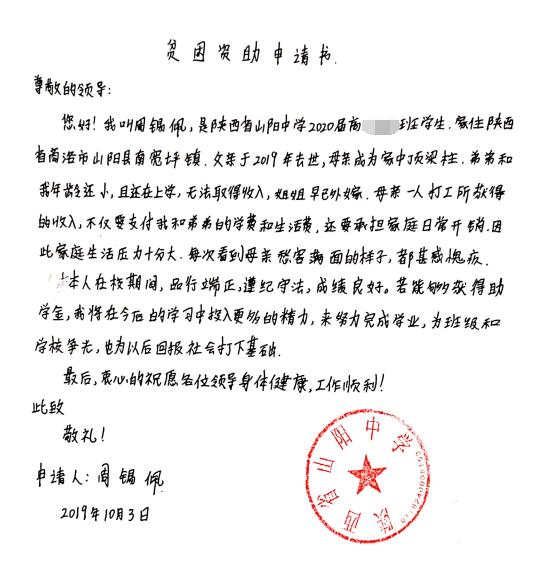 贫困资助申请书.
尊敬的领导:
您好!我叫周锡佩,是陕西省山阳中学2020届高 班学生.家住陕西
省商洛市山阳县南宽坪镇.父亲于2019年去世,母亲成为家中顶梁柱.弟弟和
我年龄还小,且还在上学,无法取得收入,姐姐早已外嫁.母亲一人打工所获得
的收入,不仅要支付我和弟弟的学费和生活费,还要承担家庭日常开销.因
此家庭生活压力十分大.每次看到母亲愁容满面的样子,都甚感愧疚.
本人在校期间,品行端正,遵纪守法,成绩良好.若能够获得助
学金,我将在今后的学习中投入更多的精力,来努力完成学业,为班级和
学校争光,也为以后回报社会打下基础.
最后,衷心的祝愿各位领导身体健康,工作顺利!
此致
敬礼!
申请人:周锡佩
2019年10月3日
陕西省山阳中学